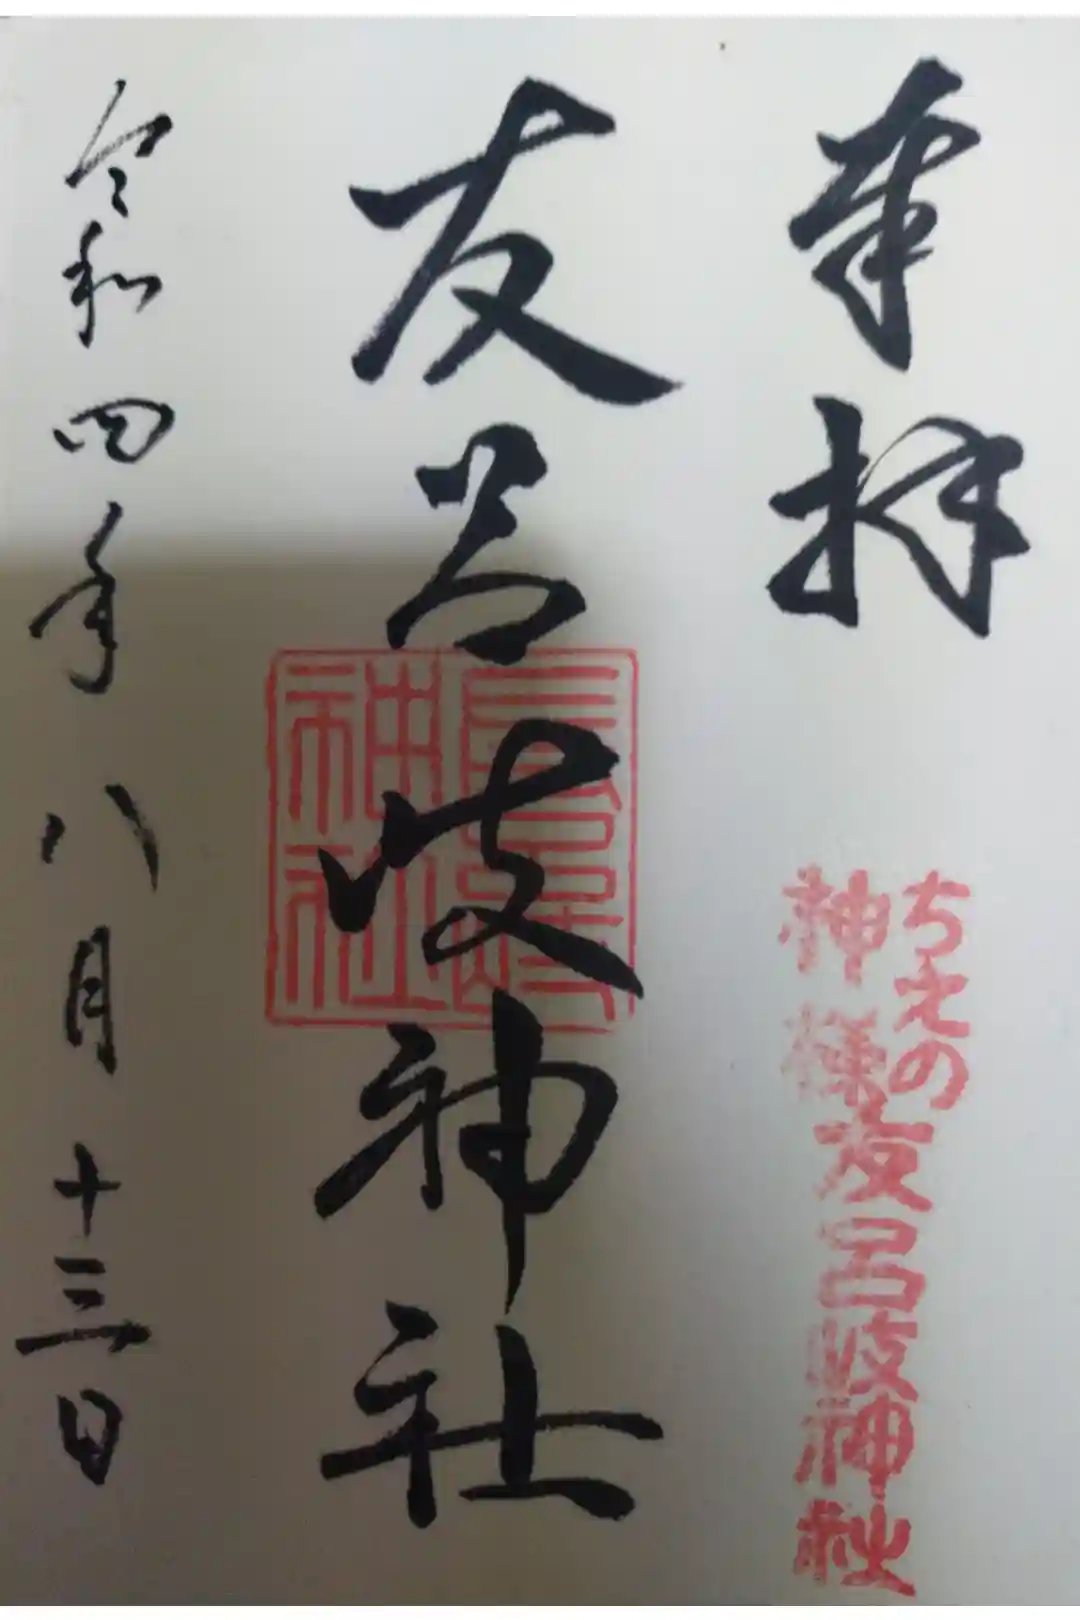 奉拝
ちえの
神様
友呂岐神社
友呂岐神社
友呂岐神社
令和四年八月十三日